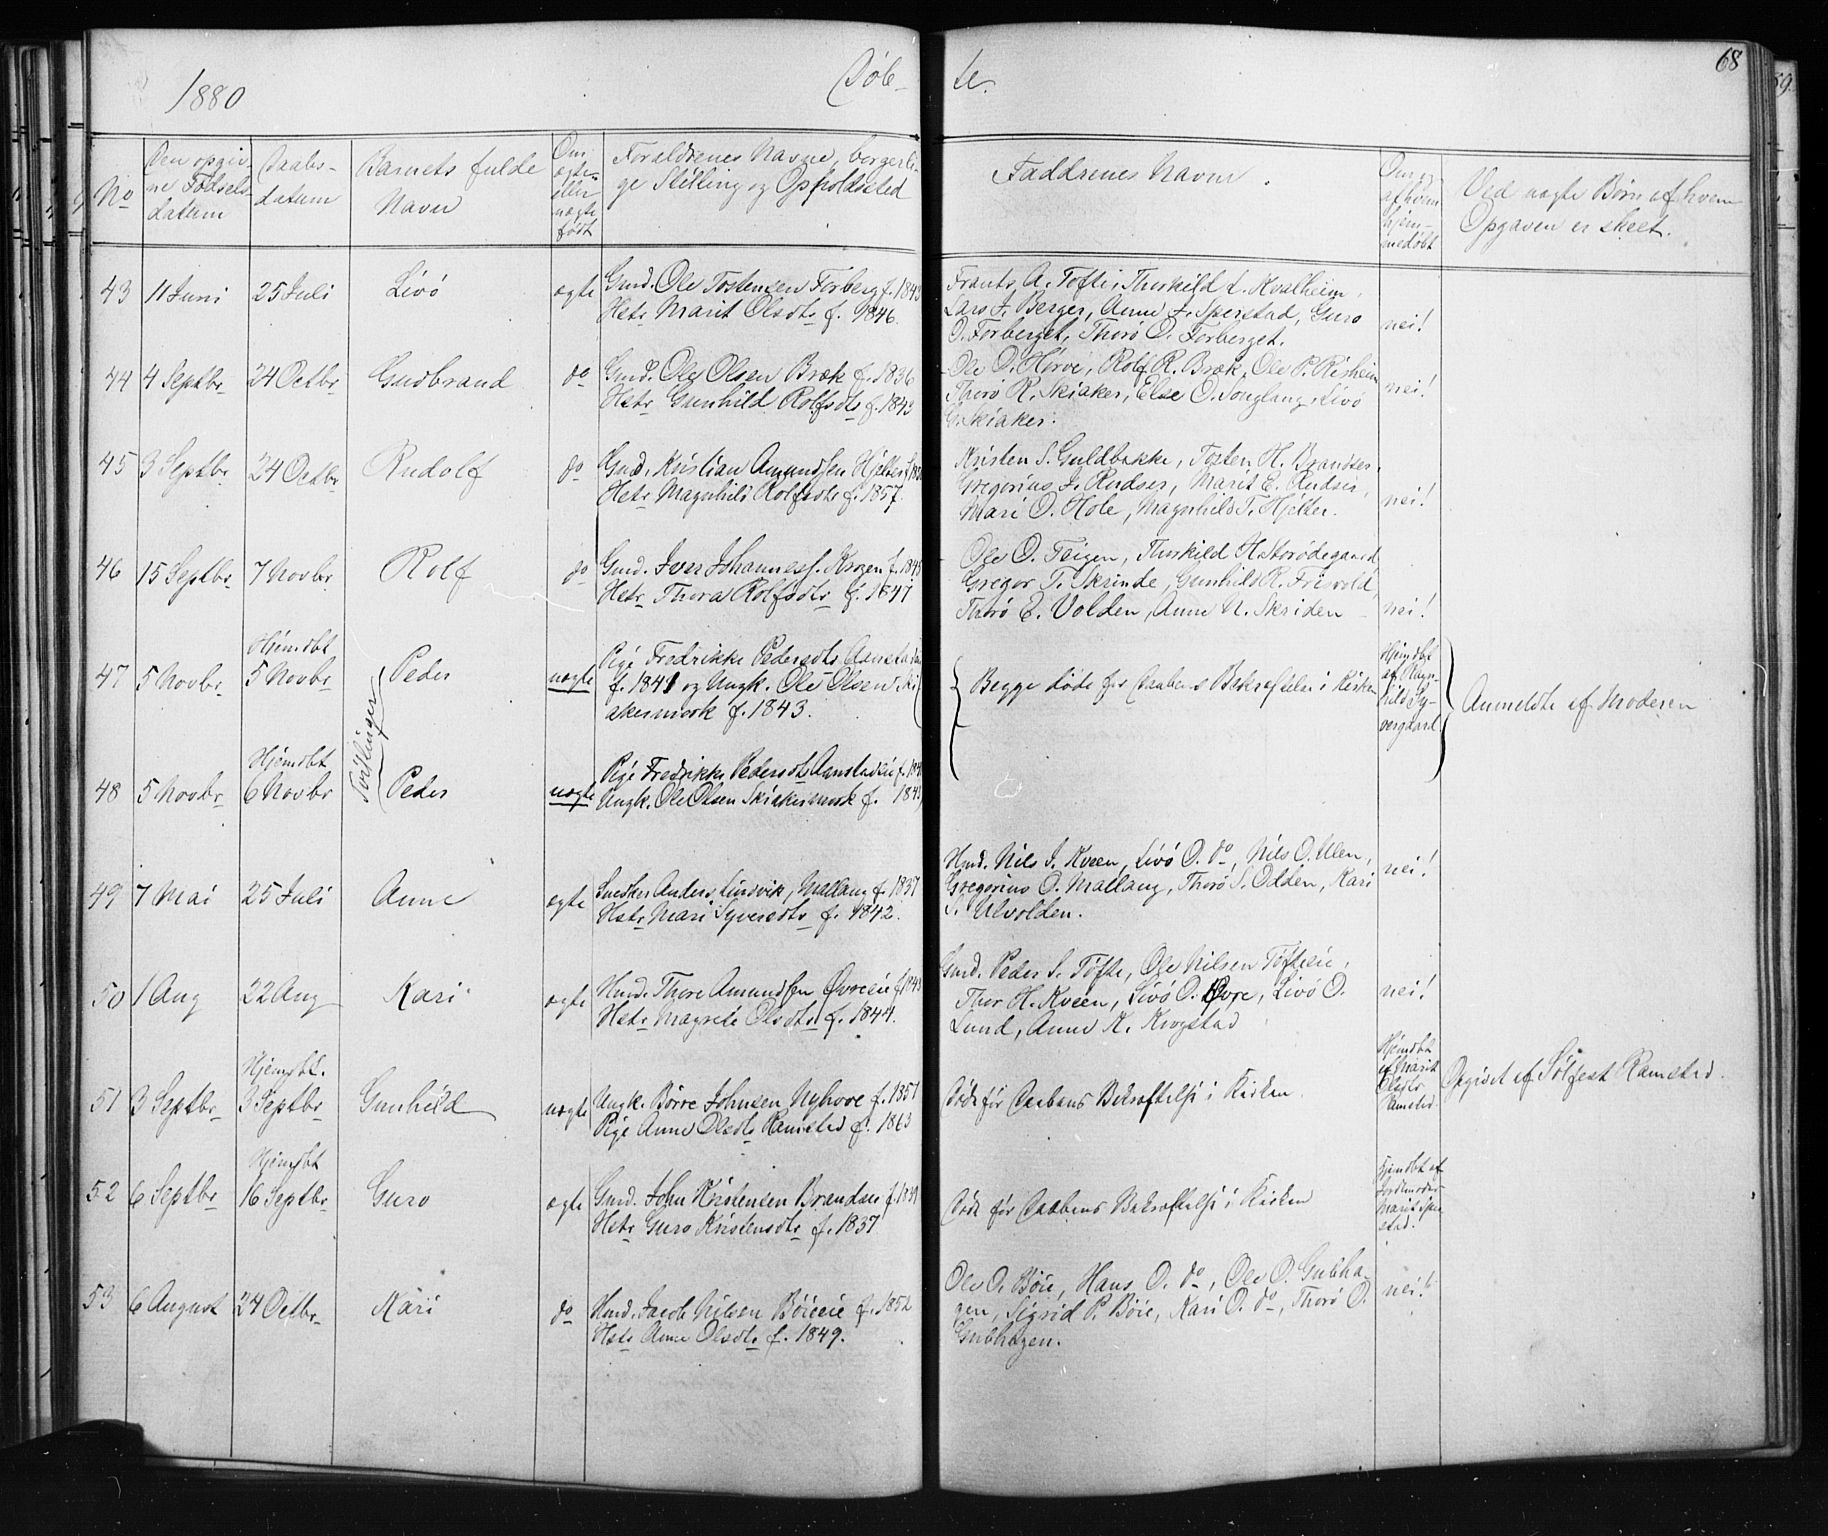 1880
Døb-
te.
68
No
Den opgiv-
ne Fødsels-
datum
Daabs-
datum
Barnets fulde
Navn
Om
ægte
eller
uægte
født
Forældrenes Navne, borgerli-
ge Stilling og Opholdssted
Faddrenes Navne.
Om og
af hvem
hjem-
medøbt
Ved uægte Børn af hvem
Opgaven er skeet.
43 11 Juni 25 Juli Livö ægte Gmd. Ole Tostensen Forberg f. 1843
Hstr Marit Olsdtr f. 1846.
Frants A. Tofte, Thorkild L. Kvalheim,
Lars J. Berger, Anne J. Sperstad, Guro
O. Forberget, Thorö O. Forberget.
nei!
44 4 Septbr 24 Octbr Gudbrand do Gmd. Ole Olsen Bræk f. 1836
Hstr Gunhild Rolfsdtr f. 1843
Ole O. Hörve, Rolf R. Bræk, Ole P. Risheim
Thorö R. Skiaker, Else O. Songlang, Livö
G. Skiaker.
nei!
45 3 Septbr 24 Octbr Rudolf do Gmd. Kristian Amundsen Hjelter
Hstr Magnhild Rolfsdtr f. 1857.
Kristen S. Guldbakke, Tosten H. Brandser,
Gregorius J. Rudser, Marit E. Rudser,
Mari O. Hole, Magnhild T. Hjelter.
nei!
46 15 Septbr 7 Novbr Rolf do Gmd. Iver Johannesf. Krogen f. 1845
Hstr Thora Rolfsdtr f. 1847
Ole O. Teigen, Thorkild H. Storødegaard,
Gregor T. Skrinde, Gunhild R. Frisvold,
Thorö E. Volden, Anne N. Skriden
nei!
47 5 Novbr Hjemdbt
5 Novbr Peder uægte Pige Fredrikke Pedersdtr Aanstadeie
f. 1841 og Ungk. Ole Olsen Ski-
akermork f. 1843.
Tvillinger
Begge døde før Daabens Bekræftelse i Kirken
Hjemdbt
af Magn-
hild Sy-
vergaard
Anmeldte af Moderen
48 5 Novbr Hjemdbt
6 Novbr Peder uægte Pige Fredrikke Pedersdtr Aanstadeie f. 1841
Ungk. Ole Olsen Skiakermork f. 1843
49 7 Mai 25 Juli Anne ægte Snedker Anders Linsvik, Mallang f. 1837
Hstr Mari Syversdtr f. 1842.
Hmd. Nils J. Kveen, Livö O. do, Nils O. Ulen,
Gregorius O. Mallang, Thorö S. Odden, Kari
S. Ulvolden.
nei!
50 1 Aug 22 Aug Kari ægte Hmd. Thore Amundsen Øvreeie f. 1843
Hstr Magrete Olsdtr f. 1844.
Gmd. Peder S. Tofte, Ole Nilsen Tofteeie,
Thor H. Kveen, Livö O. Øvre, Livö O.
Lund, Anne K. Krogstad
nei!
51 3 Septbr Hjemdbt.
3 Septbr Gunhild uægte Ungk. Börre Johnsen Nyhove f. 1851
Pige Anne Olsdtr Ramstad f. 1863
Døde før Daabens Bekræftelse i Kirken.
Hjemdbt
af Marit
Olsdtr
Ramstad
Opgivet af Sölfest Ramstad.
52 6 Septbr Hjemdbt
16 Septbr Guro ægte Gmd. John Kristensen Brandser f. 1839
Hstr Guro Kristensdtr f. 1837
Døde før Daabens Bekræftelse i Kirken
Hjemdbt af
Jordemoder
Marit Sper-
stad.
53 6 August 24 Octbr Kari do Hmd. Jacob Nilsen Böieeie f. 1852
Hstr Anne Olsdtr f. 1849.
Ole O. Böie, Hans O. do, Ole O. Gubha-
gen, Sigrid P. Böie, Kari O. do, Thorö O.
Gubhagen.
nei!